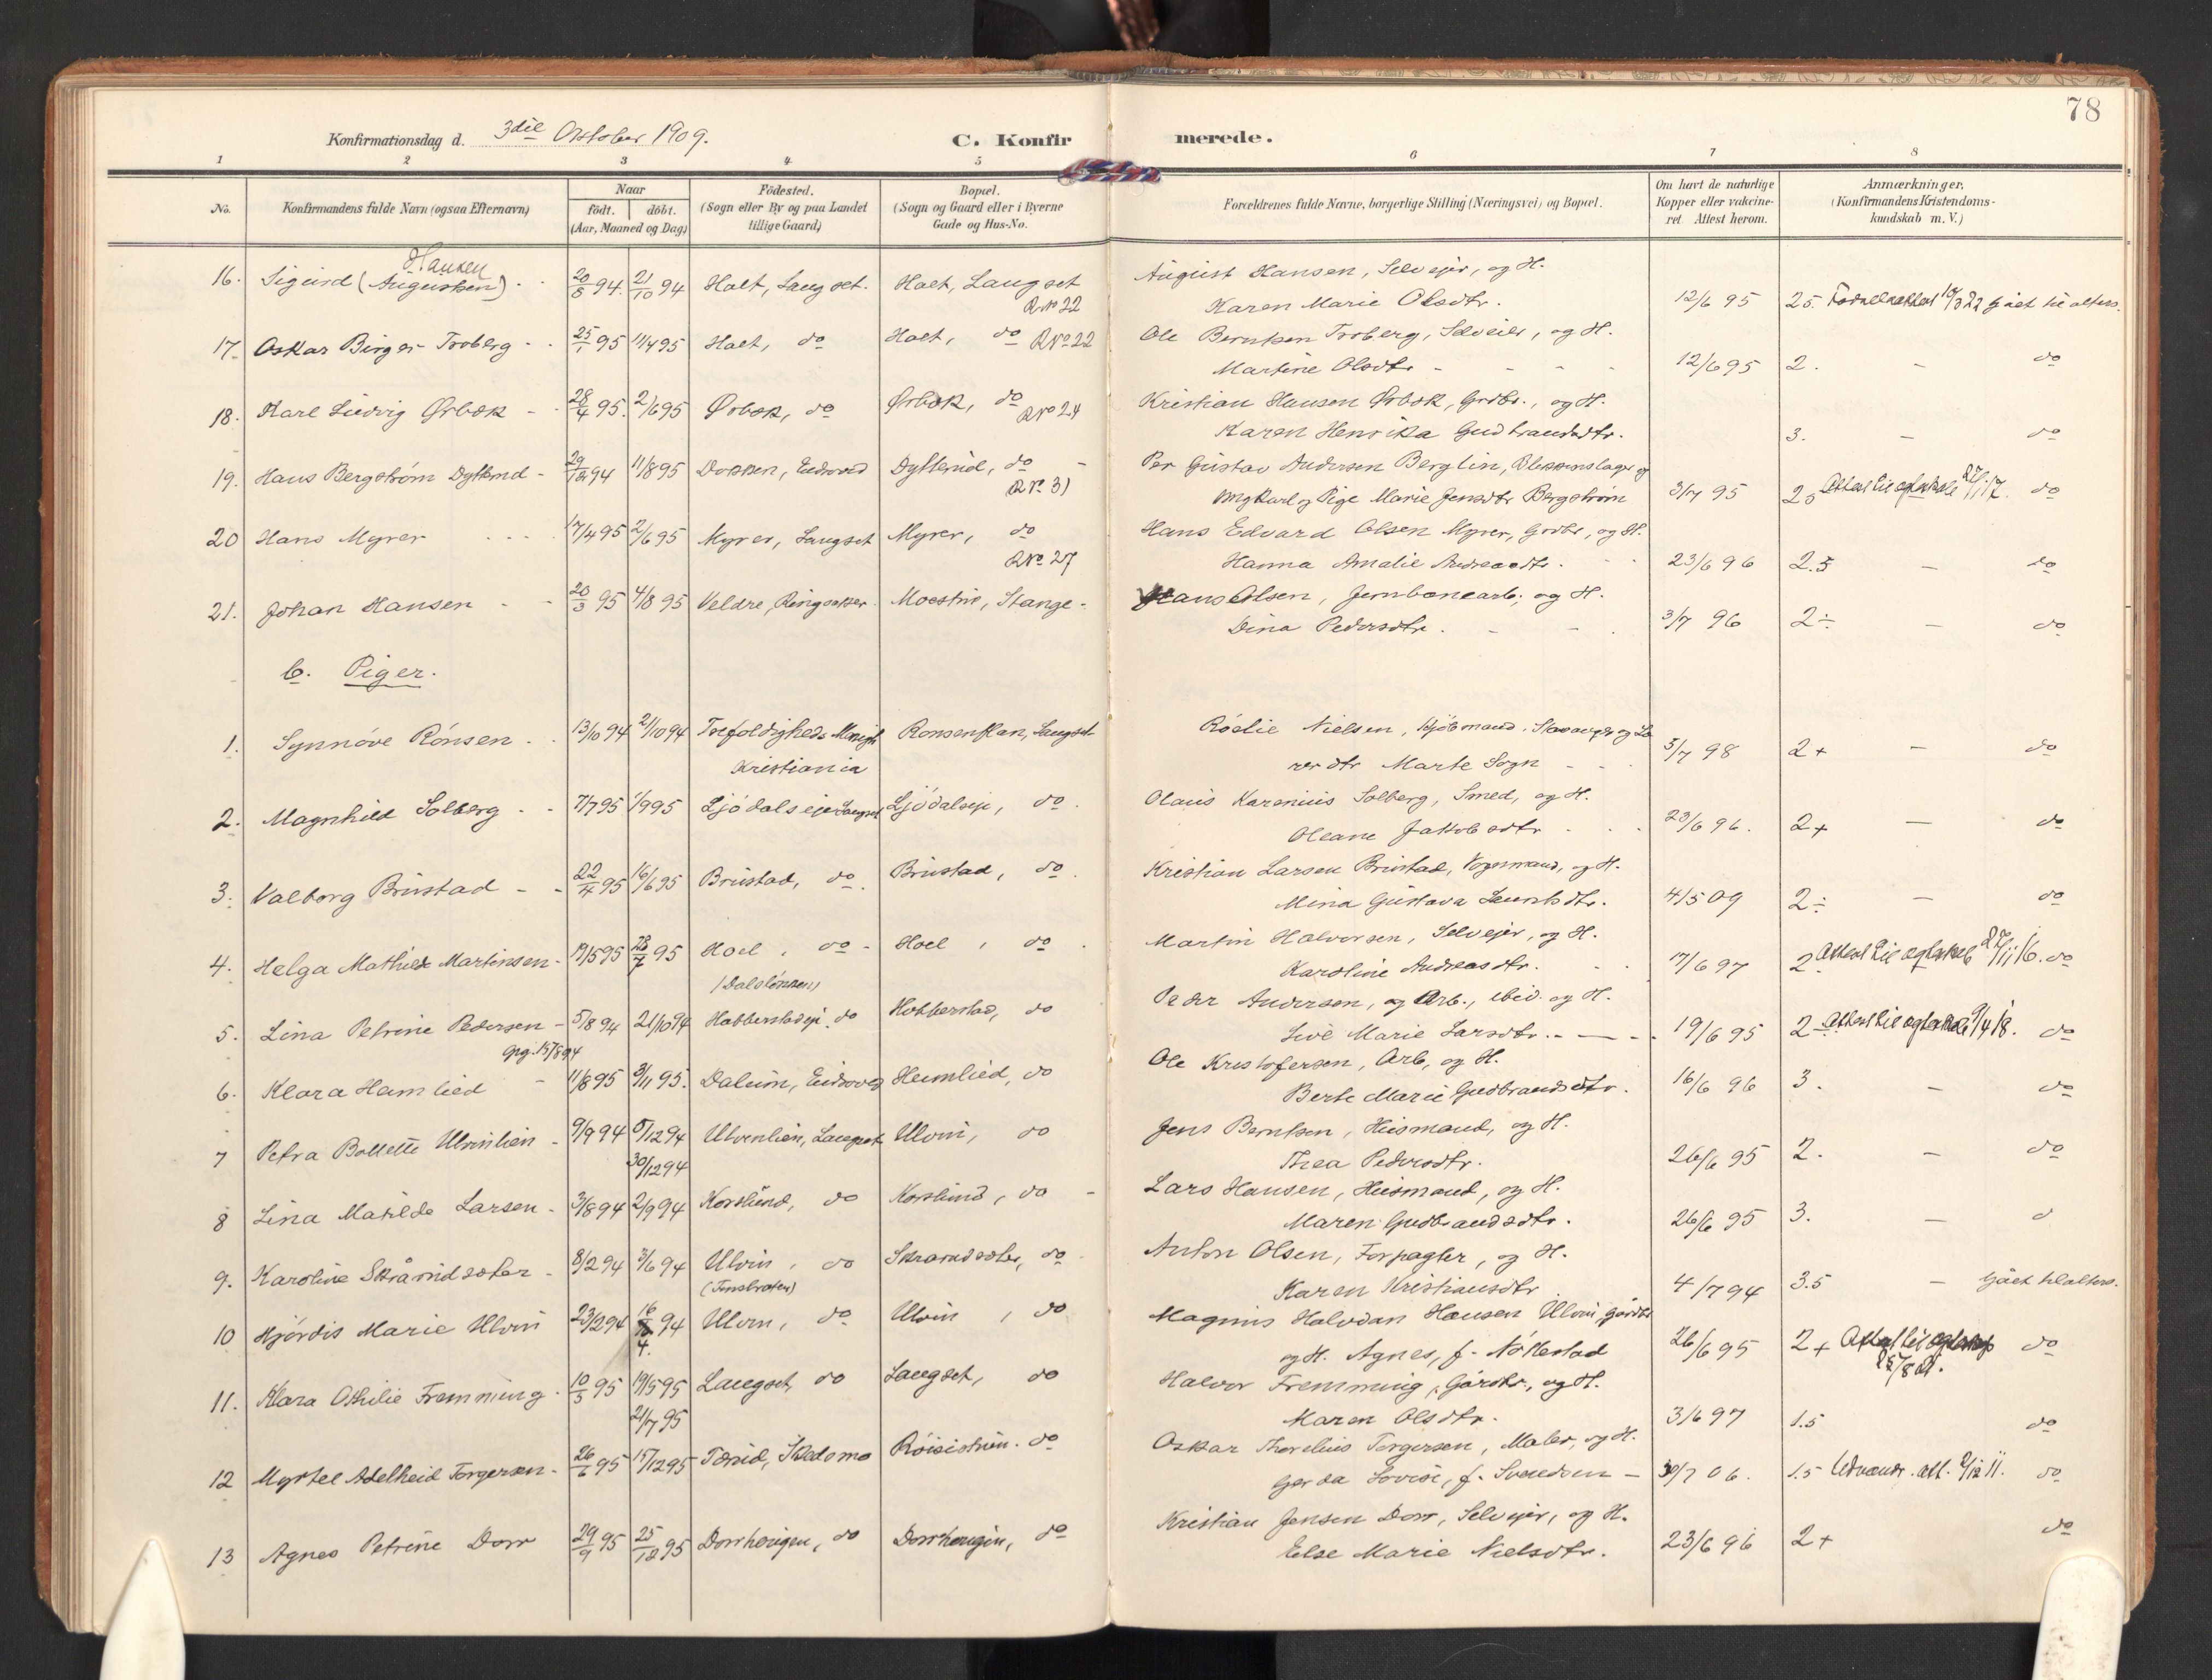 78
Konfirmationsdag d. 3die Oktober 1909.
C. Konfirmerede.
1 2 3 4 5 6 7 8
No.
Konfirmandens fulde Navn (ogsaa Efternavn)
Naar
födt. döbt.
(Aar, Maaned og Dag)
Födested.
(Sogn eller By og paa Landet
tillige Gaard)
Bopæl.
(Sogn og Gaard eller i Byerne
Gade og Hus-No.
Forældrenes fulde Navne, borgerlige Stilling (Næringsvei) og Bopæl.
Om havt de naturlige
Kopper eller vakcine-
ret. Attest herom.
Anmærkninger.
(Konfirmandens Kristendoms-
kundskab m. V.)
Hansen
16. Sigurd (Augustsen) 20/8 94. 21/10 94 Holt, Langset. Holt, Langset August Hansen, Selvejer, og H.
R No 22 Karen Marie Olsdtr. 12/6 95 25. Gået til alters.
17. Oskar Birger Troberg 25/1 95 11/4 95 Holt, do Holt, do R No 22 Ole Berntsen Troberg, Selveier, og H.
Martine Olsdtr 12/6 95 2. - do
18. Karl Ludvig Ørbæk 28/4 95. 2/6 95 Ørbæk, do Ørbæk, do R No 24 Kristian Hansen Ørbæk, Grdbr., og H.
Karen Henrika Gudbrandsdtr. 3. - do
19. Hans Bergstrøm Dytterud 29/12 94 11/8 95 Dokken, Eidsvold Dytterud, do Per Gustav Andersen Berglin, og
R No. 31 Ungkarl og Pige Marie Jensdtr Bergstrøm 3/7 95 Attest til ægteskab 27/1 17. do
20 Hans Myrer 17/4 95 2/6 95 Myrer, Langset Myrer, do Hans Edvard Olsen Myrer, Grdbr, og H.
R No 27 Hanna Amalie Andreasdtr. 23/6 96 2.5 - do
21. Johan Hansen 20/3 95 4/8 95 Veldre, Ringsaker. Moestue, Stange. Hans Olsen, Jernbanearb., og H.
Dina Pedersdtr. 3/7 96 2÷ - do
b. Piger.
1. Synnöve Rönsen 13/10 94 21/10 94 Trefoldigheds Menigh Ronsenflan, Langset Nielsen, Kjöbmand, Stavanger og La
Kristiania rerdtr Marte Sogn 3/7 98 2+ - do
2. Magnhild Solberg 7/7 95 1/9 95 Ljödalseje Langset Ljödalseje, do. Olaus Karenius Solberg, Smed, og H.
Oleane Jakobsdtr 23/6 96. 2+ - do
3. Valborg Brustad 22/4 95 16/6 95 Brustad, do. Brustad, do. Kristian Larsen Brustad, og H.
Mina Gustava Lauritsdtr. 4/5 09 2÷ - do
4. Helga Mathilde Martinsen 19/5 95 28/7 95 Hoel, do Hoel, do Martin Halvorsen, Selvejer, og H.
Karoline Andreasdtr. 17/6 97 2 Attest til ægteskab 27/11 16. do
5. Lina Petrine Pedersen 5/8 94 21/10 94 Habberstadeje, do Habberstad, do Peder Andersen, og Arb., ibid. og H.
Live Marie Larsdtr. 19/6 95 2 Attest til ægteskab 9/4 18. do
6. Klara Hemlied 11/8 95 3/11 95. Daleim, Eidsvold Hemlied, do Ole Kristofersen, Arb, og H.
Berte Marie Gudbrandsdtr. 16/6 96 3. - do
7 Petra Bollette Ulvinlien 9/9 94 30/12 94 Ulvenlien, Langset Ulvin, do Jens Berntsen, Husmand, og H.
Thea Pedersdtr. 26/6 95 2. - do
8 Lina Matilde Larsen 3/8 94 2/9 94 Korslund, do Korslund, do Lars Hansen, Husmand, og H.
Maren Gudbrandsdtr. 26/6 95 3. - d
9. Karoline Skråmdsæter 8/2 94 3/6 94 Ulvin, do Skramdsæter, do Anton Olsen, Forpagter, og H.
Karen Kristiansdtr 4/7 94 3.5 - Gået til alters.
10 Hjördis Marie Ulvin 23/2 94 16/4 94 Ulvin, do Ulvin, do Magnus Halvdan Hansen Ulvin, gårdbr
og H. Agnes, f. Nökkestad 26/6 95 2+ Attest til ægteskap do
11. Klara Othilie Fremming 10/3 95 19/5 95 Langset, do Langset, do Halvor Fremming, Gårdbr., og H.
21/7 95 Maren Olsdtr. 3/6 97 1.5 do
12 Myrtel Adelheid Torgersen 26/6 95 15/12 95 Skedsmo do Oskar Torgersen, Maler, og H.
Gerda Lovise, f. Svendsen 30/7 06. 1.5 Udvandr. att. 2/12 11. do
13 Agnes Petrine Dorr 29/9 95 25/12 95 Dorrhaugen, do Dorrhaugen, do Kristian Jensen Dorr, Selvejer, og H.
Else Marie Nielsdtr. 23/6 96 2+ do